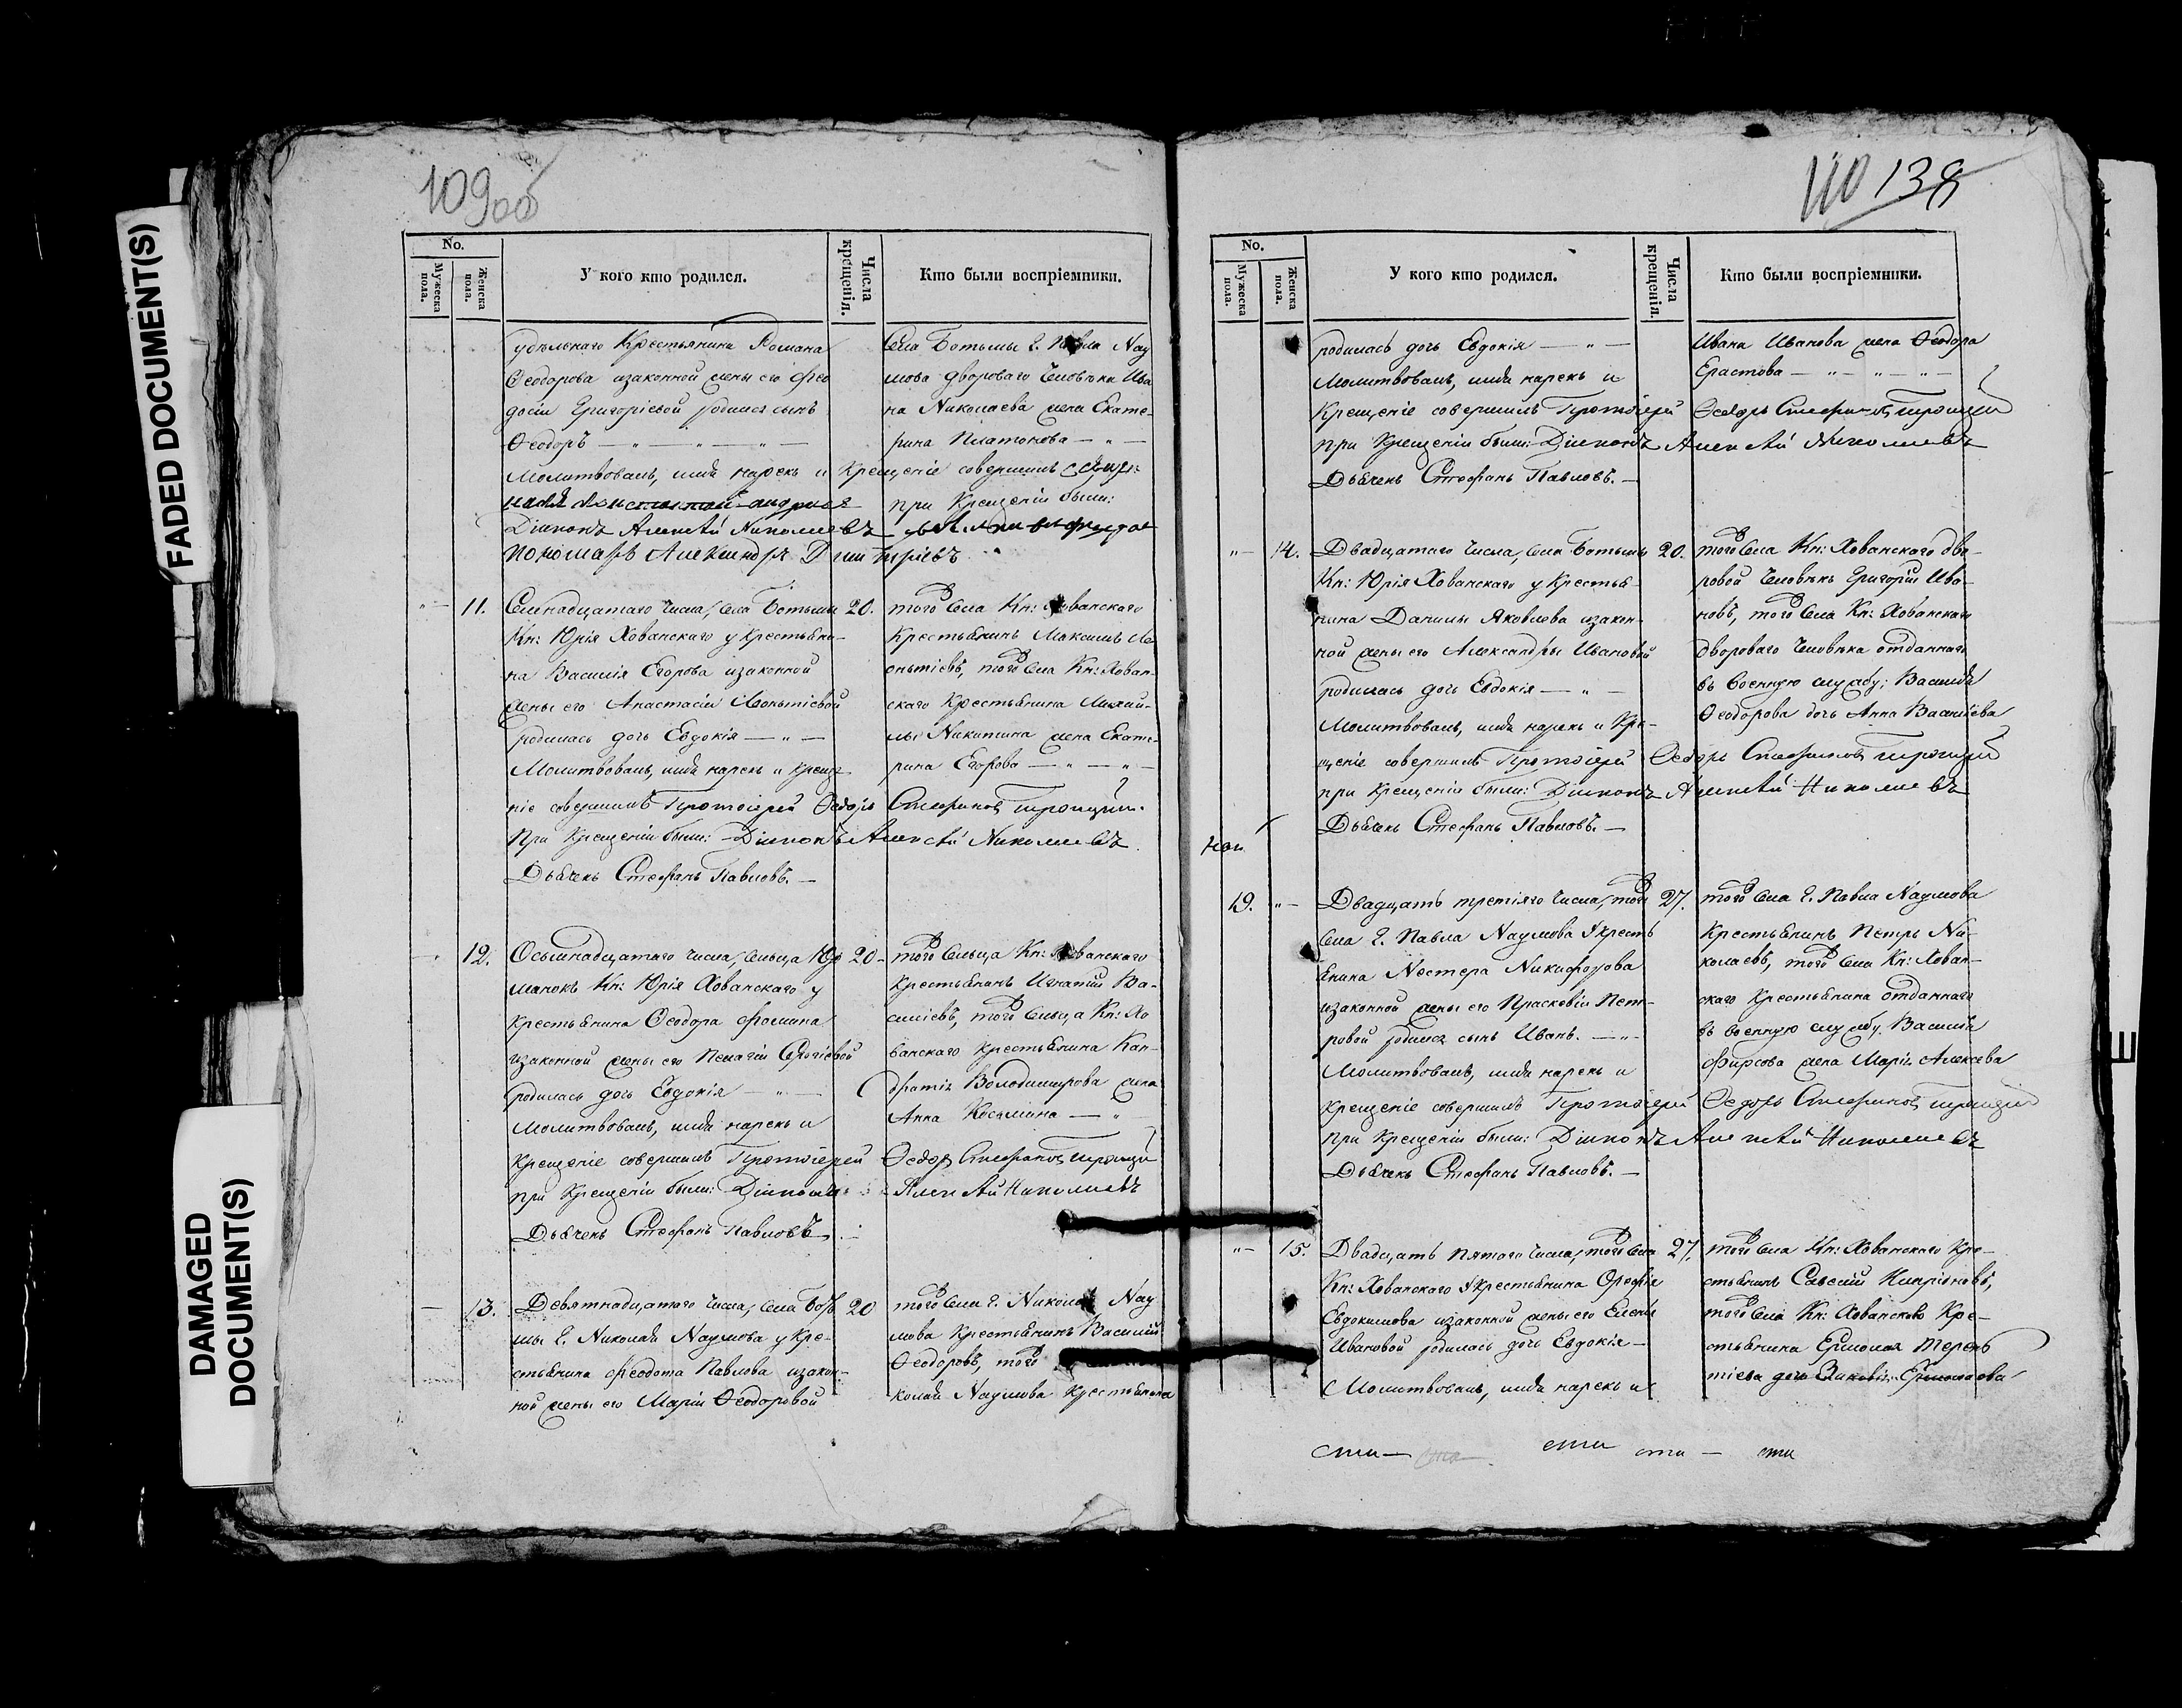 FADED DOCUMENT(S)
DAMAGED
DOCUMENT(S)
109об
No.
Мужеска пола.
Женска пола.
У кого кто родился.
Числа крещенія.
Кто были воспріемники.
удѣльнаго Крестьянина Романа
Ѳеодорова и законной жены его Ѳео
досіи Григоріевой родился сынъ
Ѳеодоръ — „ — „ — „ —
Молитвовалъ, имя нарекъ и Крещеніе совершилъ
при Крещеніи были:
Діаконъ Алексѣй Николаевъ
Пономарь Александръ Димитріевъ
села Ботьмы Г. Павла Нау
мова двороваго Человѣка Ива
на Николаева жена Екате-
рина Платонова — „ —
„ — 11. Семнадцатаго числа, села Ботьмы 20.
Кн: Юрія Хованскаго у крестьяни-
на Василія Егорова и законной
жены его Анастасіи Леонтіевой
родилась дочь Евдокія — „ —
Молитвовалъ, имя нарекъ и креще-
ніе совершилъ Протоіерей Ѳеодоръ Стефановъ Троицкій.
При Крещеніи были: Діаконъ Алексѣй Николаевъ.
Дьячекъ Стефанъ Павловъ. —
того села Кн: Хованскаго
Крестьянинъ Максимъ Ле
онтіевъ, того села Кн: Хован-
скаго Крестьянина Михай-
лы Никитина жена Екате-
рина Егорова — „ — „ —
12. Осьмнадцатаго числа, сельца Юр 20 -
манокъ Кн: Юрія Хованскаго у
крестьянина Ѳеодора Фомина
и законной жены его Пелагіи Сергіевой
родилась дочь Евдокія — „ —
Молитвовалъ, имя нарекъ и
Крещеніе совершилъ Протоіерей Ѳеодоръ Стефановъ Троицкій
при Крещеніи были: Діаконъ Алексѣй Николаевъ
Дьячекъ Стефанъ Павловъ. —
того сельца Кн: Хованскаго
крестьянинъ Игнатій Ва-
силіевъ, того сельца Кн: Хо
ванскаго крестьянина Кон-
дратія Володимирова жена
Анна Косьмина — „
— 13. Девятнадцатаго числа, села Боть 20
мы Г. Николая Наумова у Кре-
стьянина Ѳеодота Павлова и закон-
ной жены его Маріи Ѳеодоровой
того села Г. Николая Нау
мова Крестьянинъ Василій
Ѳеодоровъ, того
колая Наумова крестьянина
110 138
No.
Мужеска пола.
Женска пола.
У кого кто родился.
Числа крещенія.
Кто были воспріемники.
родилась дочь Евдокія — „ —
Молитвовалъ, имя нарекъ и
Крещеніе совершилъ Протоіерей Ѳеодоръ Стефановъ Троицкій
при Крещеніи были: Діаконъ Алексѣй Николаевъ
Дьячекъ Стефанъ Павловъ. —
Ивана Иванова жена Ѳеодора
Ерастова — „ — „ — „ —
„ — 14. Двадцатаго числа, села Ботьмы 20.
Кн: Юрія Хованскаго у Крестья-
нина Данилы Яковлева и закон-
ной жены его Александры Ивановой
родилась дочь Евдокія — „ —
Молитвовалъ, имя нарекъ и Кре-
щеніе совершилъ Протоіерей Ѳеодоръ Стефановъ Троицкій
при Крещеніи были: Діаконъ Алексѣй Николаевъ
Дьячекъ Стефанъ Павловъ. —
того села Кн: Хованскаго дво-
ровой Человѣкъ Григорій Ива-
новъ, того села Кн: Хованскаго
двороваго Человѣка отданнаго
въ военную службу; Василія
Ѳеодорова дочь Анна Васильева
19. „ — Двадцать третіяго числа, того 27.
села Г. Павла Наумова у крестъ
янина Нестера Никифорова
и законной жены его Прасковіи Пет-
ровой родился сынъ Иванъ. — „ -
Молитвовалъ, имя нарекъ и
Крещеніе совершилъ Протоіерей Ѳеодоръ Стефановъ Троицкій
при Крещеніи были: Діаконъ Алексѣй Николаевъ
Дьячекъ Стефанъ Павловъ. —
того села Г. Павла Наумова
крестьянинъ Петръ Ни-
колаевъ, того села Кн: Хован-
скаго Крестьянина отданнаго
въ военную службу, Василія
Фирсова жена Марія Алексѣева
„ — 15. Двадцать пятаго числа, того села 27.
Кн: Хованскаго у крестьянина Орефія
Евдокимова и законной жены его Елены
Ивановой родилась дочь Евдокія —
Молитвовалъ, имя нарекъ и
того села Кн: Хованскаго Кре-
стьянинъ Савелій Кипріановъ,
того села Кн: Хованскаго Кре-
стьянина Ермолая Терень
тіева дочь Зиновія Ермолаева